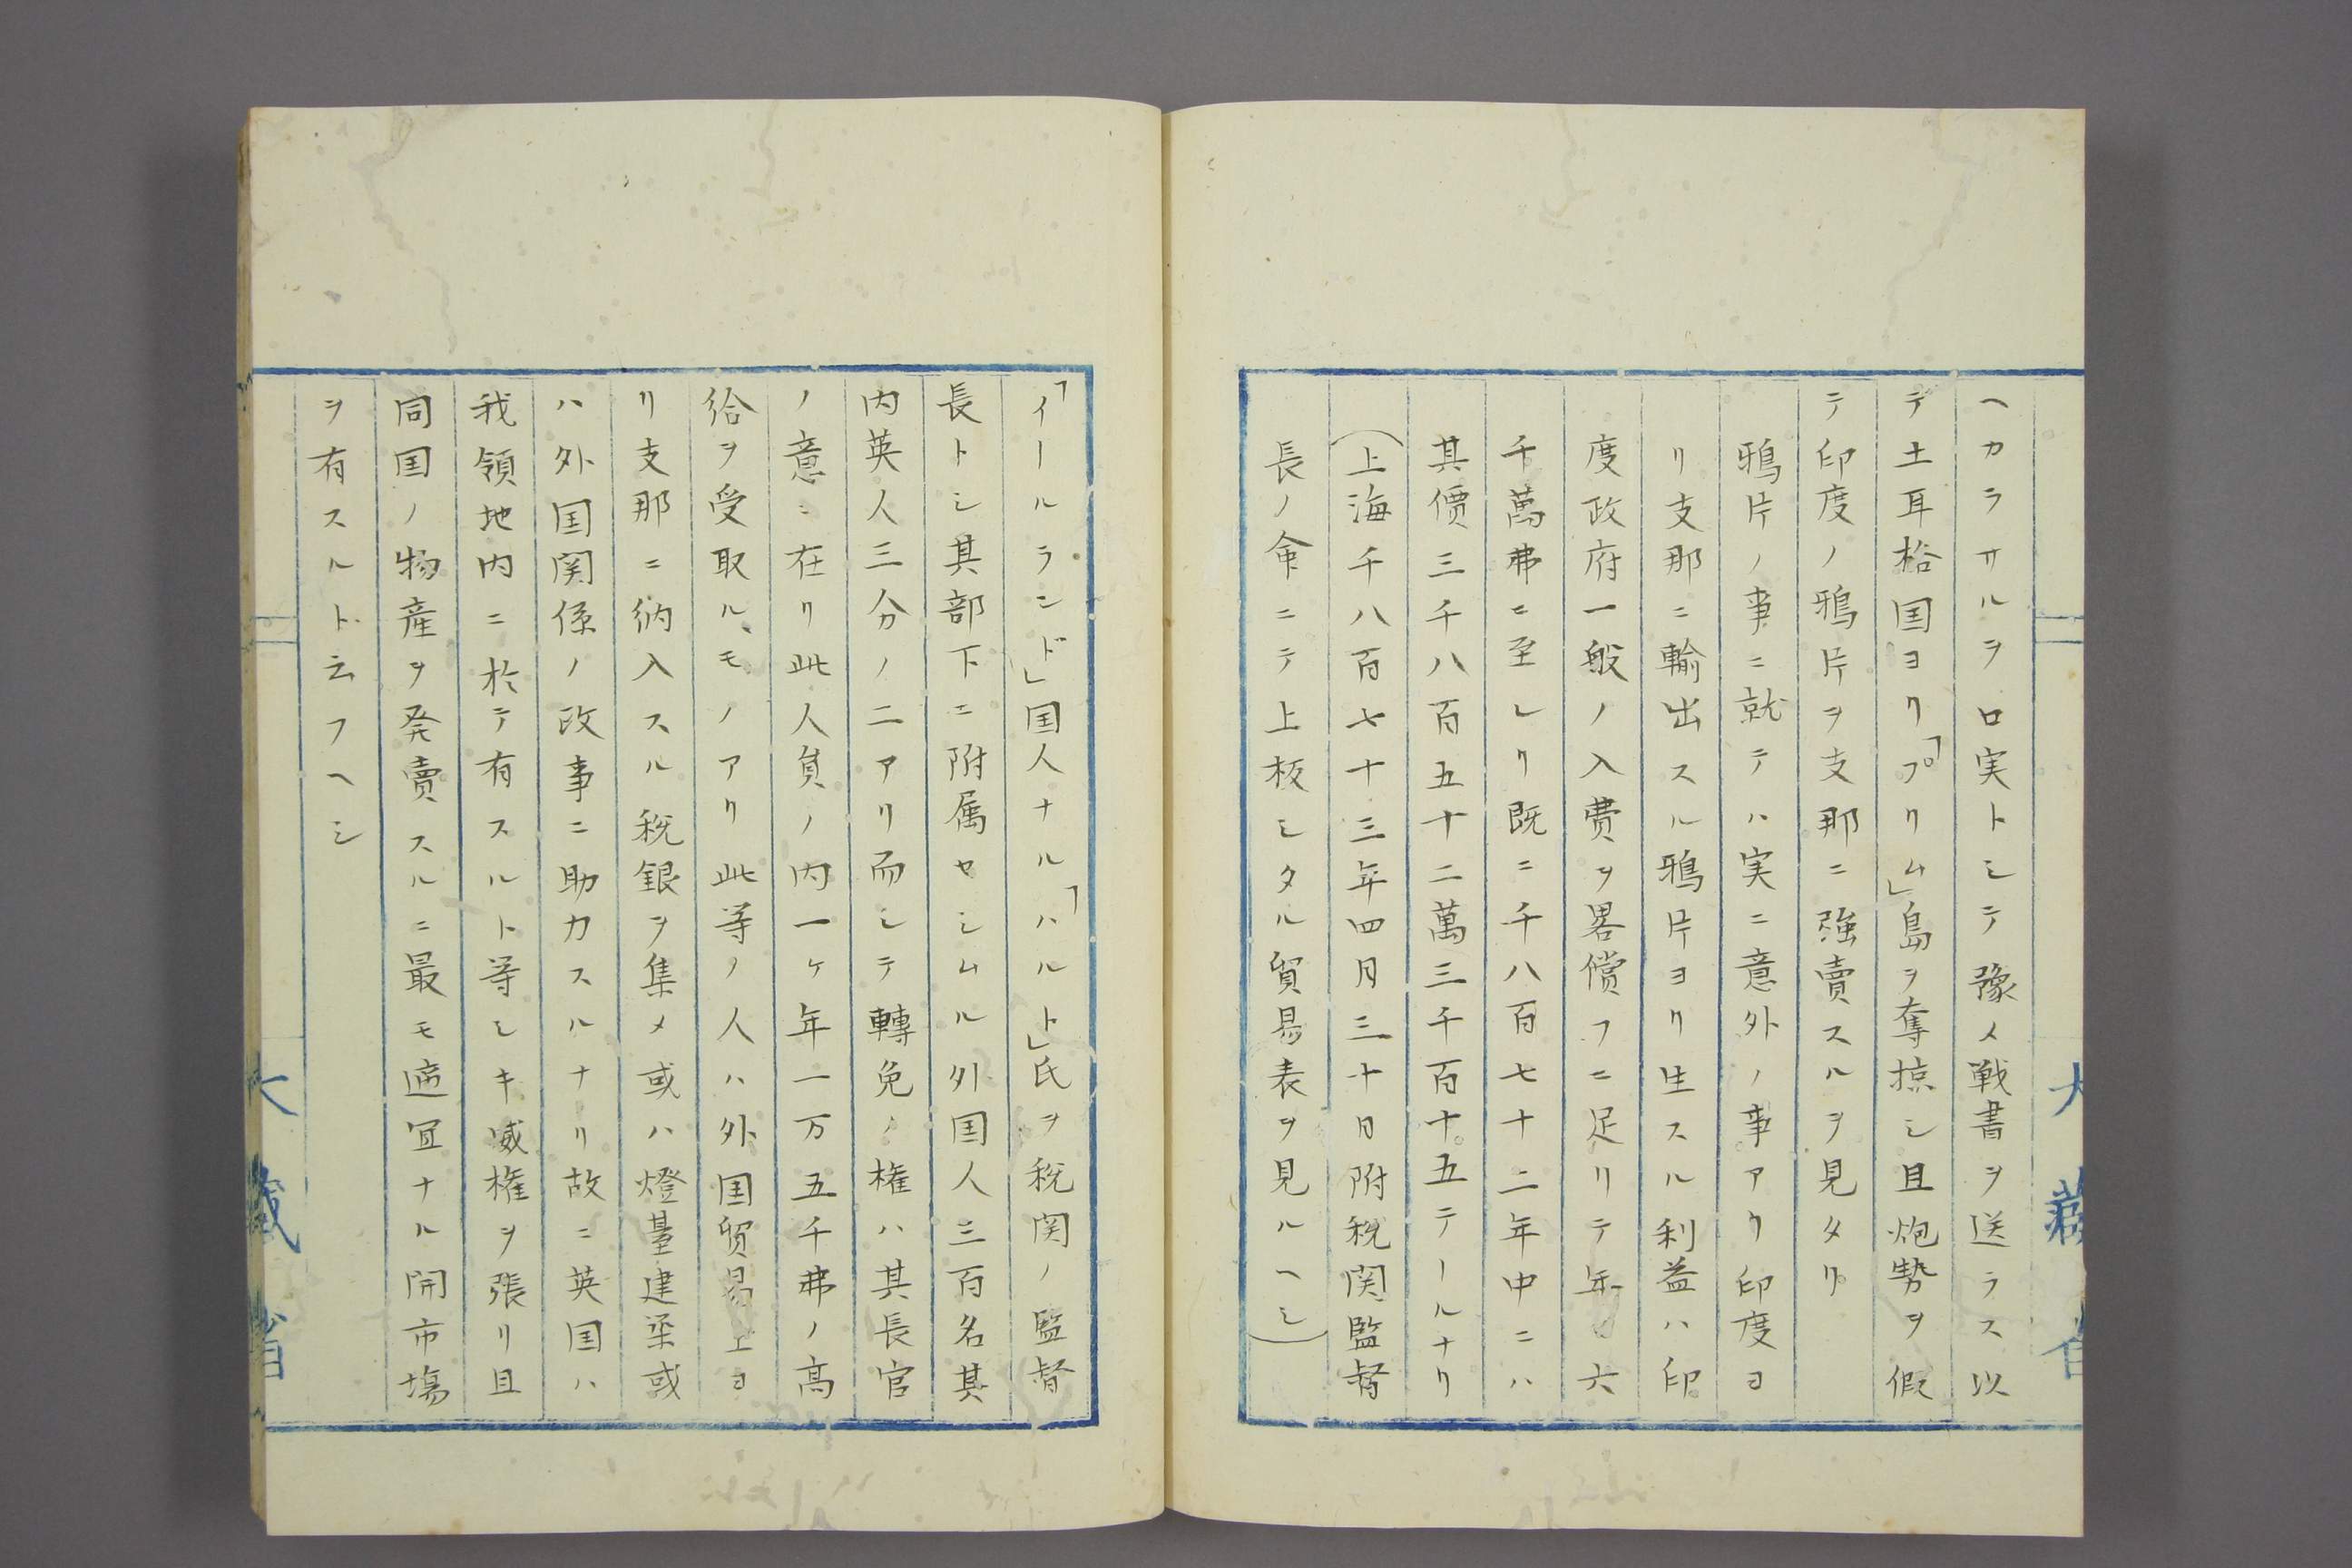 ヘカラサルヲ口実トシテ豫メ戦書ヲ送ラス以
テ土耳格国ヨリ「プリム」島ヲ奪掠シ且炮勢ヲ假
テ印度ノ鴉片ヲ支那ニ強賣スルヲ見タリ
鴉片ノ事ニ就テハ実ニ意外ノ事アリ印度ヨ
リ支那ニ輸出スル鴉片ヨリ生スル利益ハ印
度政府一般ノ入費ヲ畧償フニ足リテ年々六
千萬弗ニ至レリ既ニ千八百七十二年中ニハ
其價三千八百五十二萬三千百十五テールナリ
(上海千八百七十三年四月三十日附税関監督
長ノ命ニテ上板シタル貿易表ヲ見ルヘシ)
「イールランド」国人ナル「ハルト」氏ヲ税関ノ監督
長トシ其部下ニ附属セシムル外国人三百名其
内英人三分ノ二アリ而シテ轉免ノ権ハ其長官
ノ意ニ在リ此人負ノ内一ヶ年一万五千弗ノ高
給ヲ受取ルモノアリ此等ノ人ハ外国貿易上ヨ
リ支那ニ納入スル税銀ヲ集メ或ハ燈臺建築或
ハ外国関係ノ政事ニ助力スルナリ故ニ英国ハ
我領地内ニ於テ有スルト等シキ威権ヲ張リ且
同国ノ物産ヲ発賣スルニ最モ適宜ナル開市場
ヲ有スルト云フヘシ
大藏省